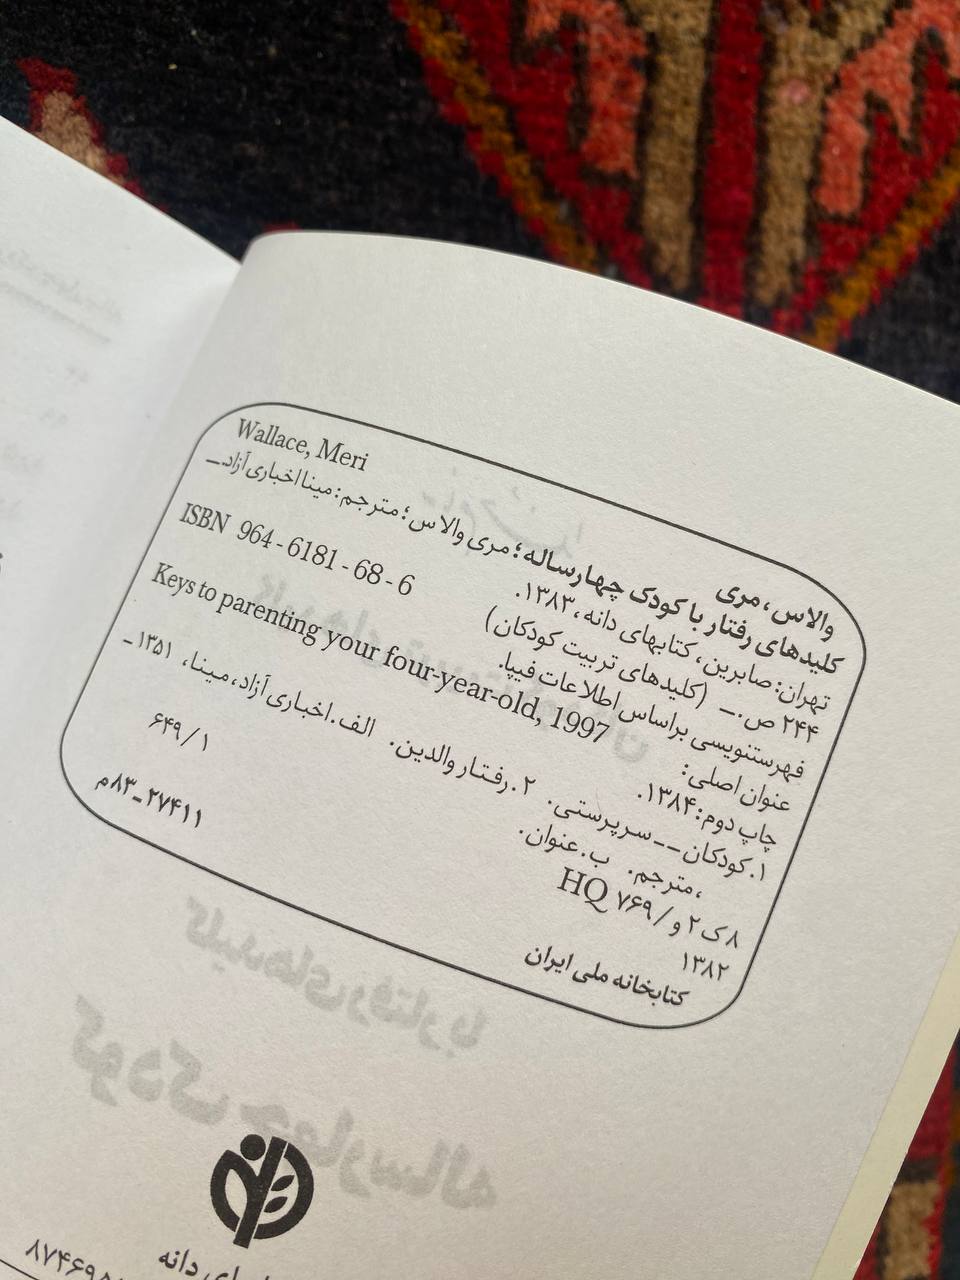 والاس، مری
Wallace, Meri
کلیدهای رفتار با کودک چهارساله؛ مری والاس؛ مترجم: مینا اخباری‌آزاد._
تهران: صابرین، کتابهای دانه، ۱۳۸۳.
ISBN 964-6181-68-6
۲۴۴ ص._ (کلیدهای تربیت کودکان)
فهرستنویسی براساس اطلاعات فیپا.
عنوان اصلی:
Keys to parenting your four-year-old, 1997
چاپ دوم: ۱۳۸۴.
۱. کودکان__سرپرستی. ۲. رفتار والدین. الف. اخباری آزاد، مینا، ۱۳۵۱_
، مترجم. ب. عنوان.
۸ک۲و/ ۷۶۹ HQ
۶۴۹/۱
۱۳۸۲
کتابخانه ملی ایران
۲۷۴۱۱_۸۳م
کلیدهای رفتار با
کودک چهارساله
دانه